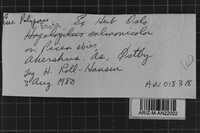 Polyporus Ex Herb Oslo
Hapalopilus salmonicolor
on Picea abies
Akershus: Ås, Østby
Leg H. Roll-Hansen
3 Aug 1980
AN 018318
ARIZ-M-AN22002